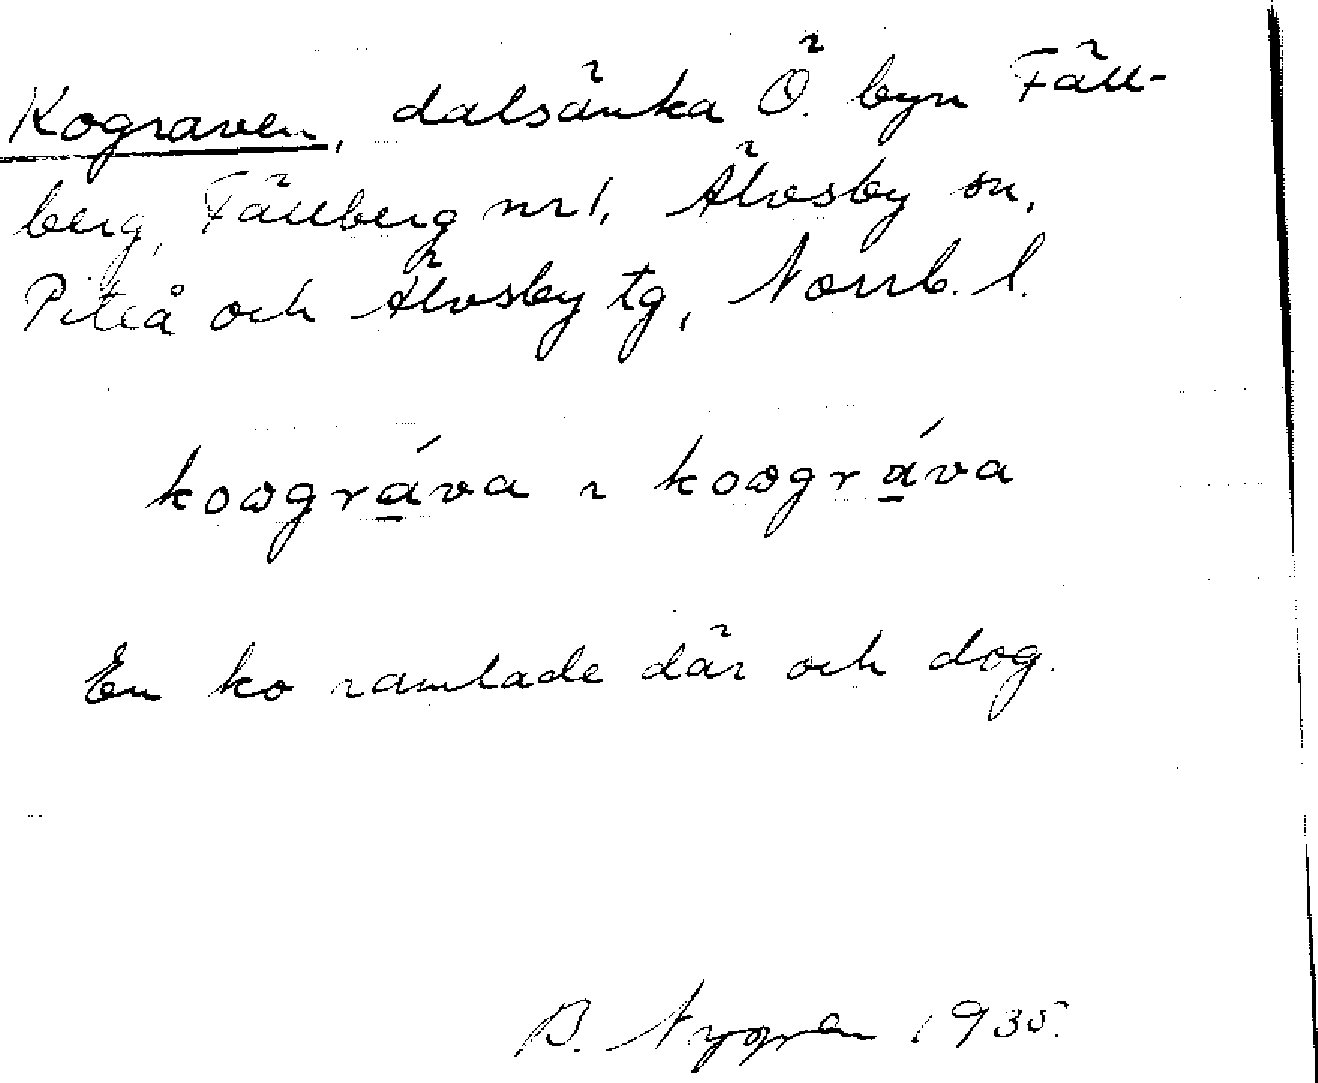 Kograven, dalsänka Ö. byn Fäll-
berg, Fällberg nr 1, Älvsby sn,
Piteå och Älvsby tg, Norrb. l.
koográva ~ koográva
En ko ramlade där och dog.
B. Nygren 1935.